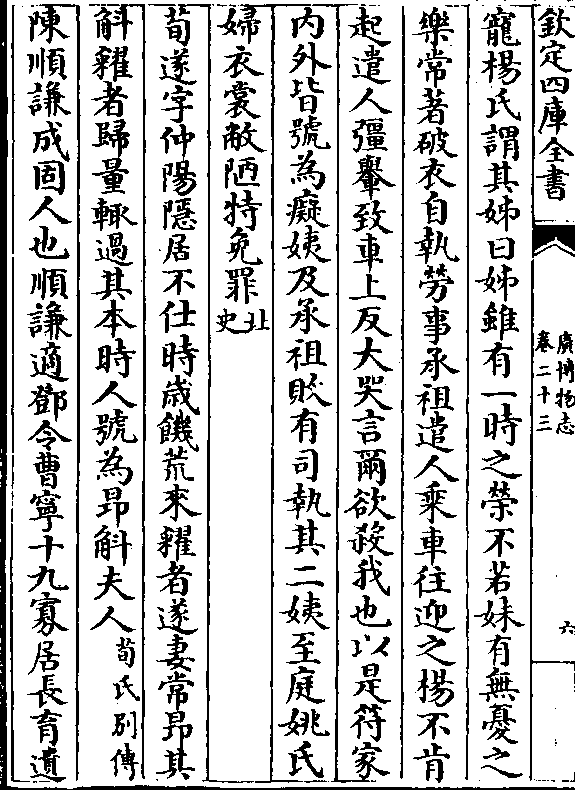 欽定四庫全書
廣博物志
卷二十三
六
寵楊氏謂其姊曰姊雖有一時之榮不若妹有無憂之
樂常著破衣自執勞事承祖遣人乗車往迎之楊不肯
起遣人彊轝致車上反大哭言爾欲殺我也以是符家
内外皆號為癡姨及承祖敗有司執其二姨至庭姚氏
婦衣裳敝陋特免罪北史
荀遂字仲陽隱居不仕時歲饑荒來糴者遂妻常昂其
斛糴者歸量輙過其本時人號為昂斛夫人荀氏别傳
陳順謙成固人也順謙適鄧令曹寧十九寡居長育遺